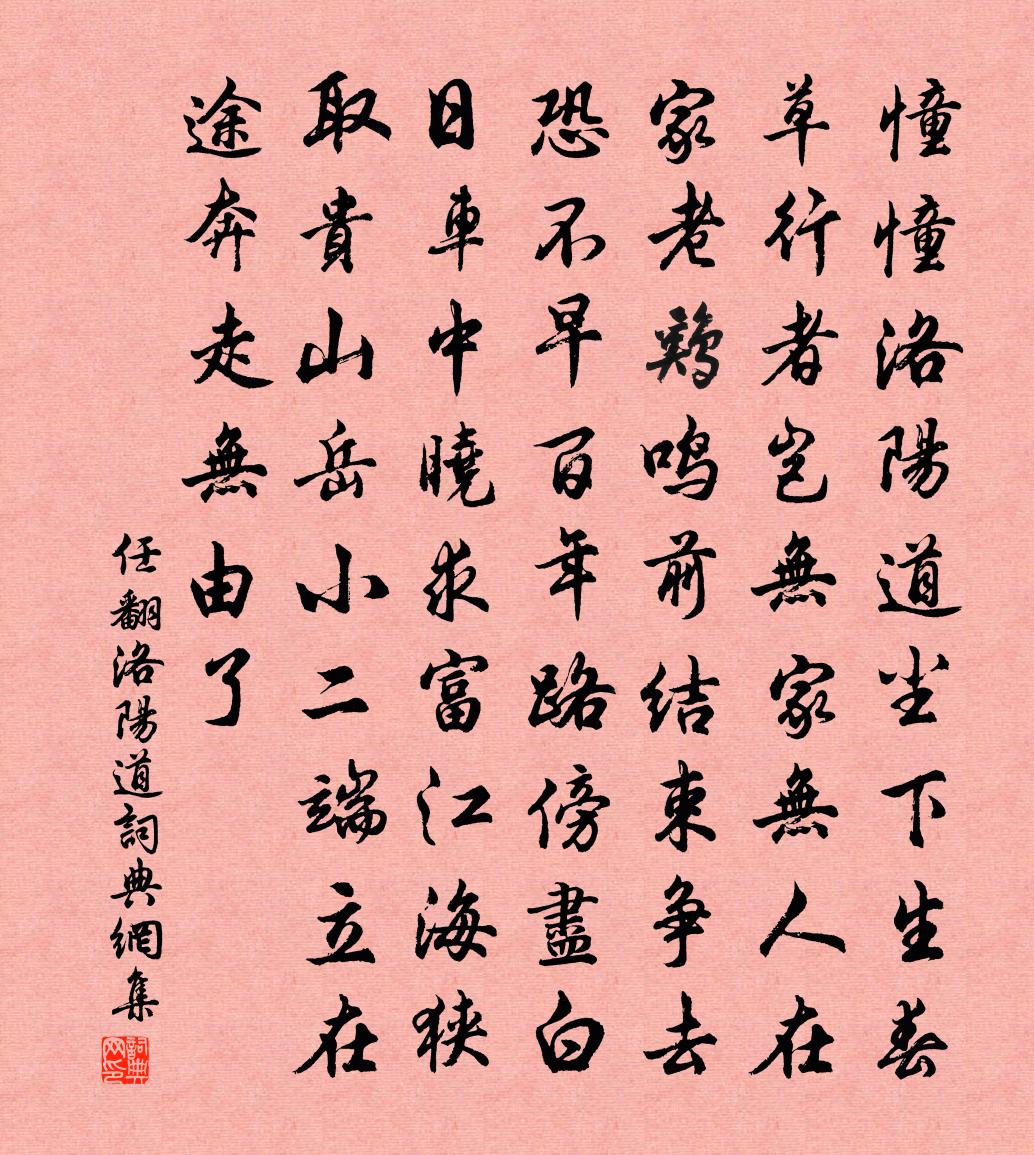 憧憧洛陽道尘下生春
草行者岂無家無人在
家老鷄鸣前结束争去
恐不早百年路傍盡白
日車中曉求富江海狭
取貴山岳小二端立在
途奔走無由了
任翻洛陽道詞典網集
詞典网印